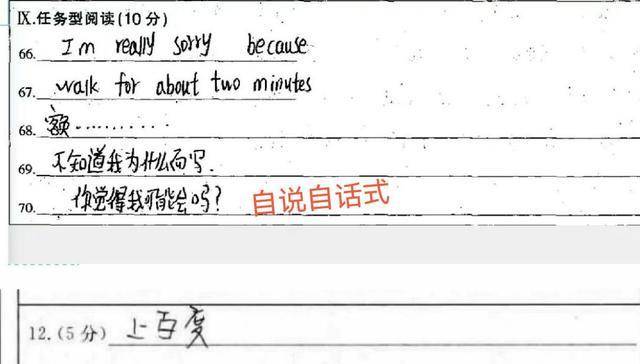 Ⅸ.任务型阅读(10分)
66. Im really sorry because
67. walk for about two minutes
68. 额...........
69. 不知道我为什么而写.
70. 你觉得我可能会吗? 自说自话式
12.(5分) 上百度